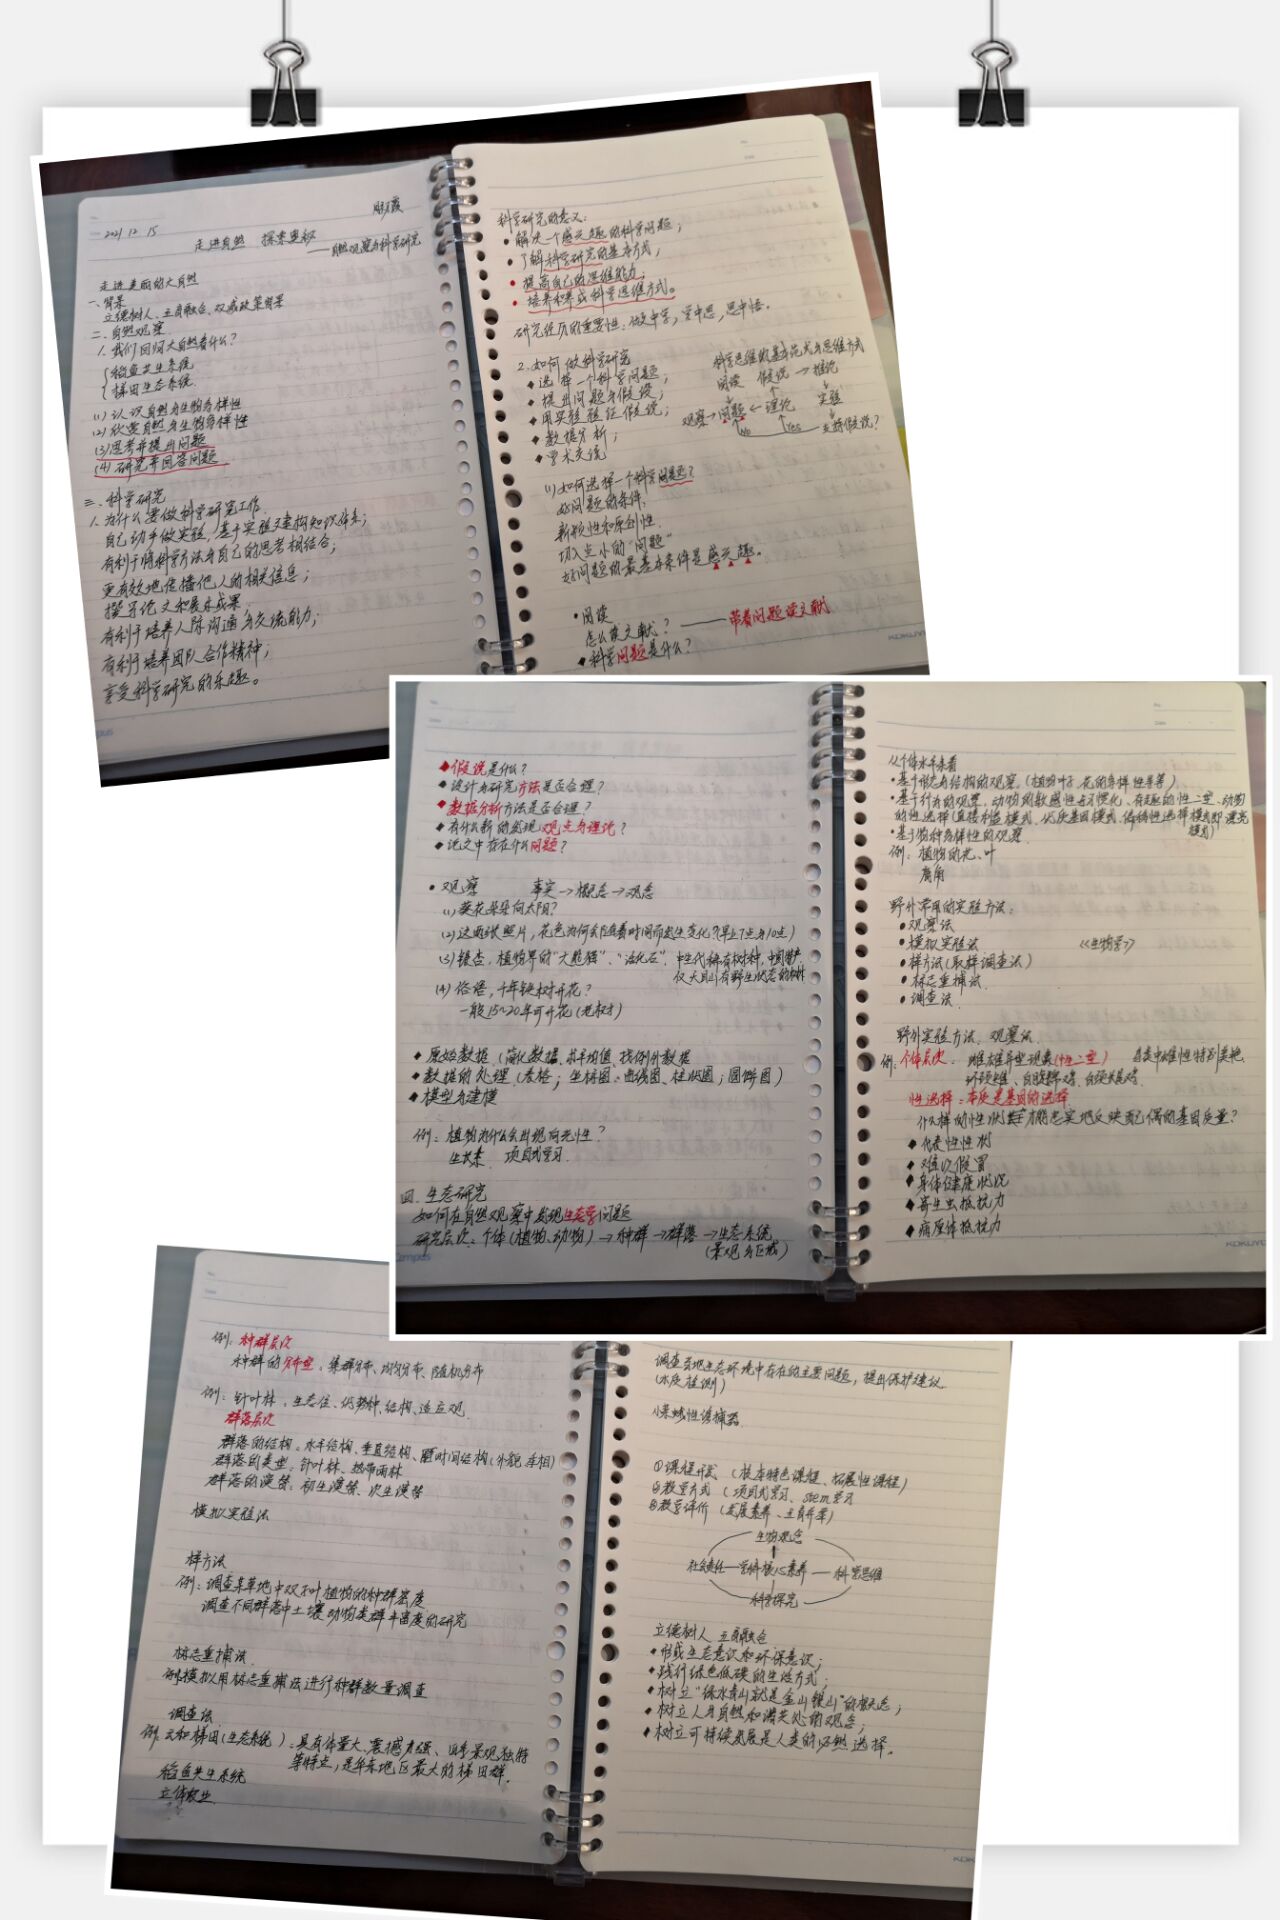 2021 12 15
走进自然 探索奥秘
——自然观察与科学研究
走进美丽的大自然
一、背景
立德树人、五育融合、双减政策背景
二、自然观察
1.我们回归大自然看什么?
稻鱼共生系统
梯田生态系统
(1)认识自然与生物多样性
(2)欣赏自然与生物多样性
(3)思考并提出问题
(4)研究并回答问题
三、科学研究
1.为什么要做科学研究工作
自己动手做实验,基于实验建构知识体系;
有利于将科学方法与自己的思考相结合;
更有效地传播他人的相关信息;
撰写论文和展示成果;
有利于培养人际沟通与交流能力;
有利于培养团队合作精神;
享受科学研究的乐趣。
科学研究的意义:
•解决一个感兴趣的科学问题;
•了解科学研究的基本方式;
•提高自己的思维能力;
•培养和养成科学思维方式。
研究经历的重要性:做中学,学中思,思中悟。
2.如何做科学研究
◆选择一个科学问题;
◆提出问题与假设;
◆用实验验证假设;
◆数据分析;
◆学术交流
科学思维的基本范式与思维方式
阅读 假说→推论
观察→问题←理论 实验
No Yes 支持假说?
(1)如何选择一个科学问题?
好问题的条件:
新颖性和原创性
切入点小的“问题”
好问题的最基本条件是感兴趣。
•阅读
怎么读文献?——带着问题读文献
◆科学问题是什么?
KOKUYO
◆假说是什么?
◆设计与研究方法是否合理?
◆数据分析方法是否合理?
◆有什么新的发现观点与理论?
◆论文中存在什么问题?
•观察 事实→概念→观念
(1)葵花朵朵向太阳?
(2)这两张照片,花色为何会随着时间而发生变化?(早上7点与10点)
(3)银杏,植物界的“大熊猫”、“活化石”,中生代稀有树种,中国特产
仅天目山有野生状态的树木
(4)俗语,千年铁树开花?
一般15~20年可开花(老树才)
◆原始数据(简化数据,求平均值 找例外数据
◆数据的处理(表格;坐标图、曲线图、柱状图;圆饼图)
◆模型与建模
例:植物为什么会出现向光性?
生长素 项目式学习
四、生态研究
如何在自然观察中发现生态学问题
研究层次:个体(植物、动物)→种群→群落→生态系统
(景观与区域)
Campus
从个体水平来看
•基于形态与结构的观察(植物叶子、花的多样性等等)
•基于行为的观察,动物的敏感性与习惯化、有趣的性二型、动物
的性选择(直接利益模式、优质基因模式、
•基于物种多样性的观察
例:植物的花、叶
鹿角
野外常用的实验方法:
•观察法
•模拟实验法 《生物学》
•样方法(取样调查法)
•标志重捕法
•调查法
野外实验方法 观察法
例:个体层次: 雌雄异型现象(性二型) 鸟类中雄性特别美艳
环颈雉、白腹锦鸡、白颈长尾鸡
性选择:本质是基因的选择
什么样的性状才能忠实地反映配偶的基因质量?
◆代表性性状
◆难以假冒
◆身体健康状况
◆寄生虫抵抗力
◆病原体抵抗力
KOKUYO
例:种群层次
种群的分布型:集群分布、均匀分布、随机分布
例:针叶林:生态位、优势种、结构、适应观
群落层次
群落的结构:水平结构、垂直结构、时间结构(外貌、季相)
群落的类型:针叶林、热带雨林
群落的演替:初生演替、次生演替
模拟实验法
样方法
例:调查某草地中双子叶植物的种群密度
调查不同群落中土壤动物类群丰富度的研究
标志重捕法
例:模拟用标志重捕法进行种群数量调查
调查法
例:云和梯田(生态系统):具有体量大、震撼力强、四季景观独特
等特点,是华东地区最大的梯田群。
稻鱼共生系统
立体农业
调查当地生态环境中存在的主要问题,提出保护建议
(水质检测)
小果蝇性诱捕器
①课程开发(校本特色课程、拓展性课程)
②教学方式(项目式学习、stem学习
③教学评价(发展素养、五育并举)
生物观念
社会责任—学科核心素养—科学思维
科学探究
立德树人 五育融合
◆形成生态意识和环保意识;
◆践行绿色低碳的生活方式;
◆树立“绿水青山就是金山银山”的概念;
◆树立人与自然和谐共处的观念;
◆树立可持续发展是人类的必然选择。